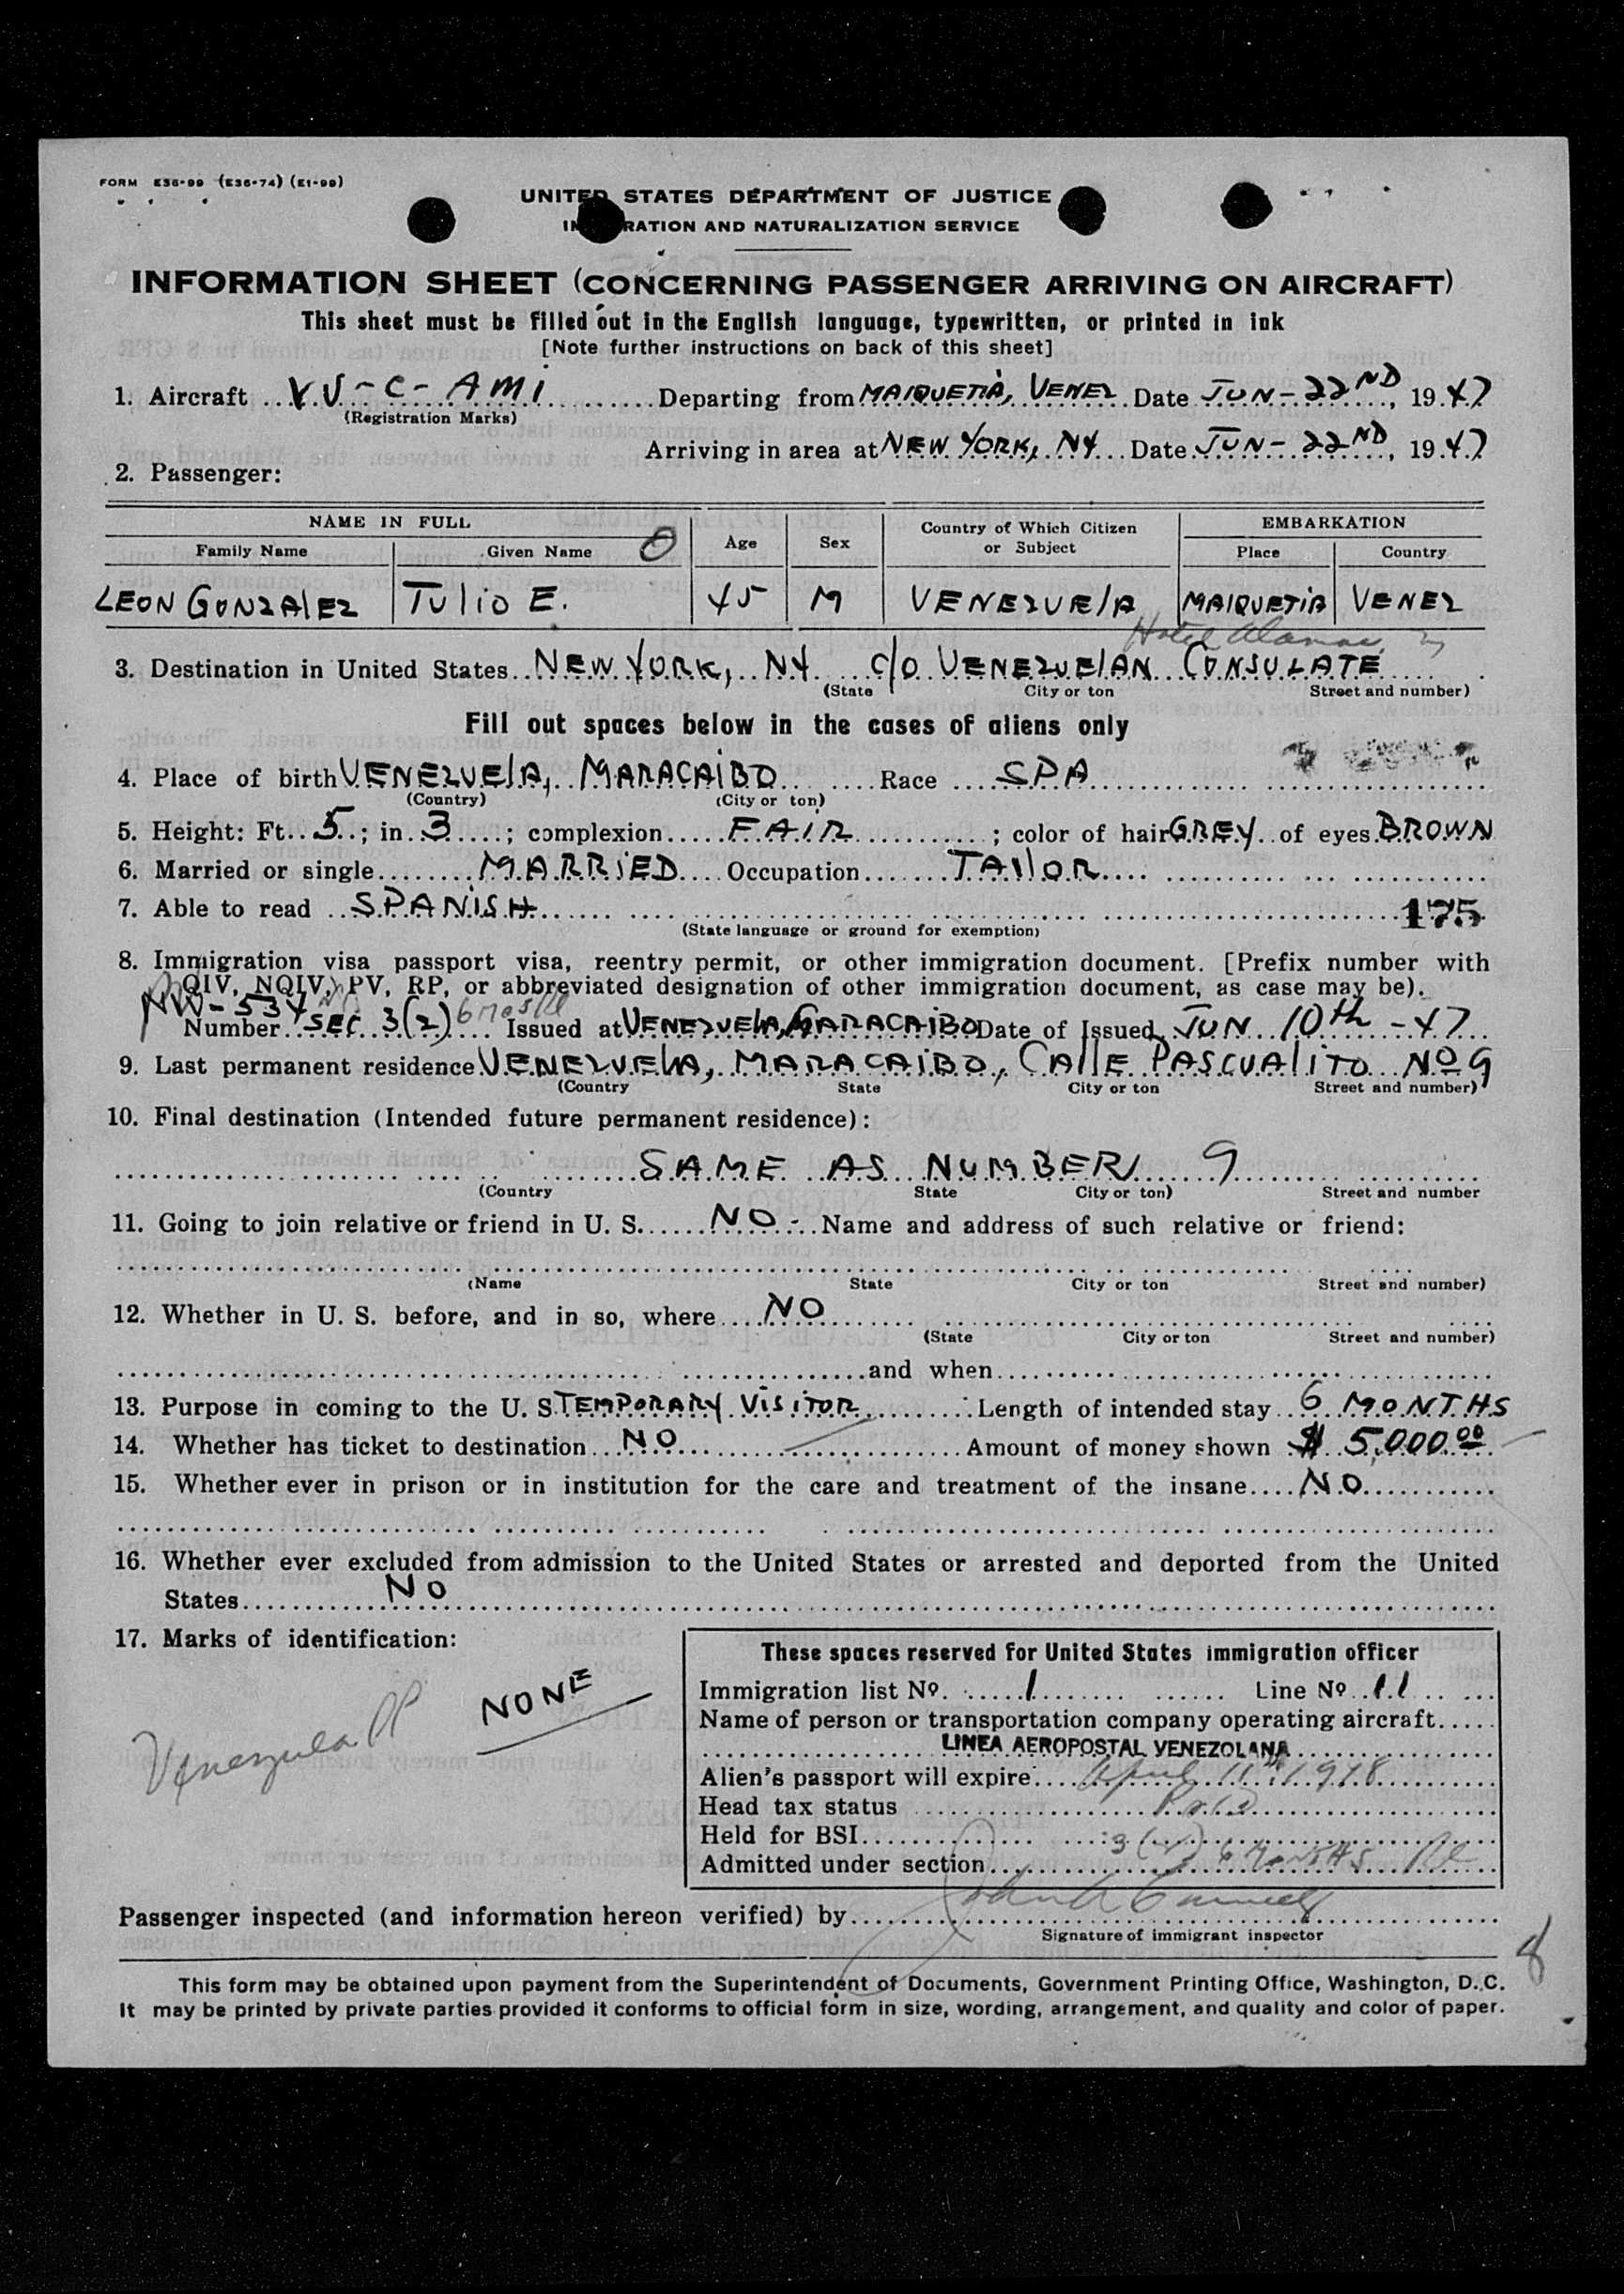 FORM E36-99 (E36-74) (E1-99)
UNITED STATES DEPARTMENT OF JUSTICE
RATION AND NATURALIZATION SERVICE
INFORMATION SHEET (CONCERNING PASSENGER ARRIVING ON AIRCRAFT)
This sheet must be filled out in the English language, typewritten, or printed in ink
[Note further instructions on back of this sheet]
1. Aircraft YV-C-AMI Departing from MAIQUETIA, VENEZ Date JUN-22ND, 1947
(Registration Marks)
Arriving in area at NEW YORK, NY Date JUN-22ND, 1947
2. Passenger:
NAME IN FULL Age Sex Country of Which Citizen or Subject EMBARKATION
Family Name Given Name Place Country
LEON GONZALEZ TULIO E. 45 M VENEZUELA MAIQUETIA VENEZ
Hotel
3. Destination in United States NEW YORK, NY c/o VENEZUELAN CONSULATE
(State City or ton Street and number)
Fill out spaces below in the cases of aliens only
4. Place of birth VENEZUELA, MARACAIBO Race SPA
(Country) (City or ton)
5. Height: Ft. 5; in. 3; complexion FAIR; color of hair GREY of eyes BROWN
6. Married or single MARRIED Occupation TAILOR
7. Able to read SPANISH 175
(State language or ground for exemption)
8. Immigration visa passport visa, reentry permit, or other immigration document. [Prefix number with
QIV, NQIV, PV, RP, or abbreviated designation of other immigration document, as case may be).
534
Number SEC 3(2) Issued at VENEZUELA, MARACAIBO Date of Issued JUN 10th-47
9. Last permanent residence VENEZUELA, MARACAIBO, CALLE PASCUALITO No 9
(Country State City or ton Street and number)
10. Final destination (Intended future permanent residence):
SAME AS NUMBER 9
(Country State City or ton) Street and number
11. Going to join relative or friend in U. S. NO - Name and address of such relative or friend:
(Name State City or ton Street and number)
12. Whether in U. S. before, and in so, where NO
(State City or ton Street and number)
and when
13. Purpose in coming to the U. S TEMPORARY VISITOR Length of intended stay 6 MONTHS
14. Whether has ticket to destination NO Amount of money shown $ 5,000.00
15. Whether ever in prison or in institution for the care and treatment of the insane NO
16. Whether ever excluded from admission to the United States or arrested and deported from the United
States NO
17. Marks of identification:
NONE
Venezuela PP
These spaces reserved for United States immigration officer
Immigration list No. 1 Line No 11
Name of person or transportation company operating aircraft
LINEA AEROPOSTAL VENEZOLANA
Alien's passport will expire April 11th 1948
Head tax status Paid
Held for BSI
Admitted under section 3(2) 6 MONTHS
Passenger inspected (and information hereon verified) by
Signature of immigrant inspector
8
This form may be obtained upon payment from the Superintendent of Documents, Government Printing Office, Washington, D. C.
It may be printed by private parties provided it conforms to official form in size, wording, arrangement, and quality and color of paper.